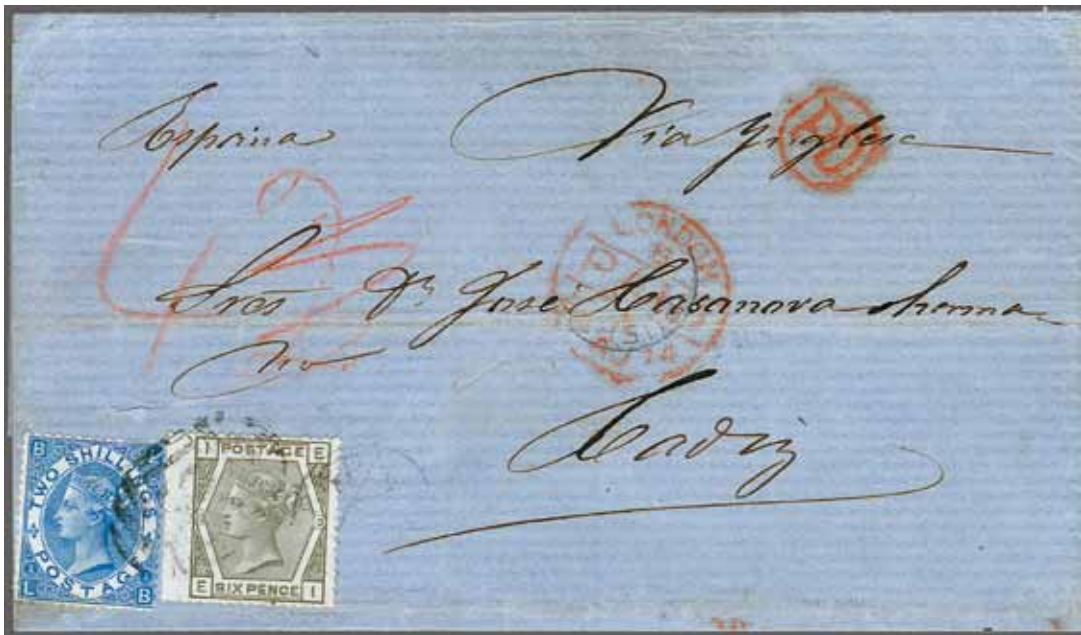 España Via Ynglesa
PD
LONDON
PAID
74
Srōs Dn José Casanova y herma
no
Cadiz
B B
TWO SHILLINGS
POSTAGE
L B
I POSTAGE E
E SIX PENCE I